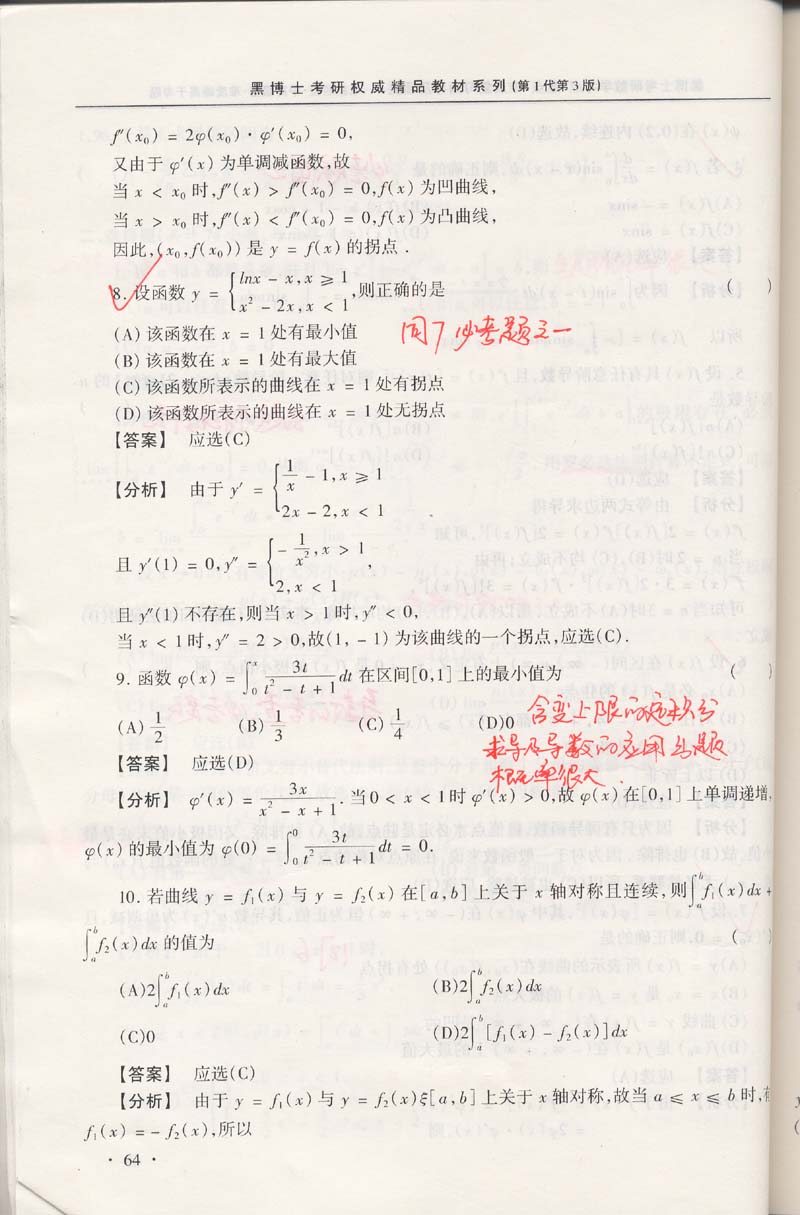 黑博士考研权威精品教材系列(第1代第3版)
f″(x₀) = 2φ(x₀)·φ′(x₀) = 0,
又由于 φ′(x) 为单调减函数,故
当 x < x₀ 时,f″(x) > f″(x₀) = 0,f(x) 为凹曲线,
当 x > x₀ 时,f″(x) < f″(x₀) = 0,f(x) 为凸曲线,
因此,(x₀,f(x₀)) 是 y = f(x) 的拐点 .
8. 设函数 y = { lnx - x, x ⩾ 1
x² - 2x, x < 1 ,则正确的是 ( )
(A) 该函数在 x = 1 处有最小值
同7 必考题之一
(B) 该函数在 x = 1 处有最大值
(C) 该函数所表示的曲线在 x = 1 处有拐点
(D) 该函数所表示的曲线在 x = 1 处无拐点
【答案】 应选(C)
【分析】 由于 y′ = { 1/x - 1, x ⩾ 1
2x - 2, x < 1
且 y′(1) = 0, y″ = { - 1/x², x > 1
2, x < 1 ,
且 y″(1) 不存在,则当 x > 1 时, y″ < 0,
当 x < 1 时, y″ = 2 > 0,故(1, - 1) 为该曲线的一个拐点,应选(C).
9. 函数 φ(x) = ∫₀ˣ 3t/(t² - t + 1) dt 在区间[0,1] 上的最小值为 ( )
(A) 1/2 (B) 1/3 (C) 1/4 (D)0
含变上限的定积分
求导及导数的应用的题
概率很大.
【答案】 应选(D)
【分析】 φ′(x) = 3x/(x² - x + 1) . 当 0 < x < 1 时 φ′(x) > 0,故 φ(x) 在[0,1] 上单调递增,
φ(x) 的最小值为 φ(0) = ∫₀⁰ 3t/(t² - t + 1) dt = 0.
10. 若曲线 y = f₁(x) 与 y = f₂(x) 在[a,b] 上关于 x 轴对称且连续,则∫ₐᵇ f₁(x)dx +
∫ₐᵇ f₂(x)dx 的值为 ( )
(A)2∫ₐᵇ f₁(x)dx (B)2∫ₐᵇ f₂(x)dx
(C)0 (D)2∫ₐᵇ [f₁(x) - f₂(x)]dx
【答案】 应选(C)
【分析】 由于 y = f₁(x) 与 y = f₂(x)ξ[a,b] 上关于 x 轴对称,故当 a ⩽ x ⩽ b 时,有
f₁(x) = - f₂(x),所以
· 64 ·